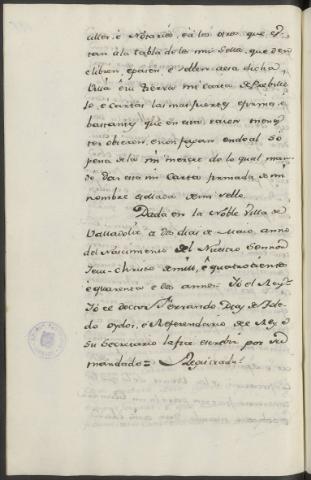 ciller, é Notarios, é á los otros que es-
tan á la tabla de los mis Sellos, que den
é libren, é pasen, é sellen a esa dicha
Villa é su tierra mi carta de Preville-
jo, é cartas las mas fuertes, é firmes, é
bastantes que en esta razon menes-
ter obieren, é non fagan endeal so
pena de la mi merced de lo qual man-
dé dar esta mi Carta firmada de mi
nombre é sellada de mi sello.
Dada en la Noble Villa de
Valladolid á dos dias de Mayo, anno
del Nascimiento del Nuestro Sennor
Jesu-Christo de mill, é quatrocientos
é quarenta é dos annos. Yo el Rey.
Yo el doctor Fernando Diaz de Tole-
do Oydor, é Referendario del Rey é
su Secretario la fice escrebir por su
mandado = Registrada.